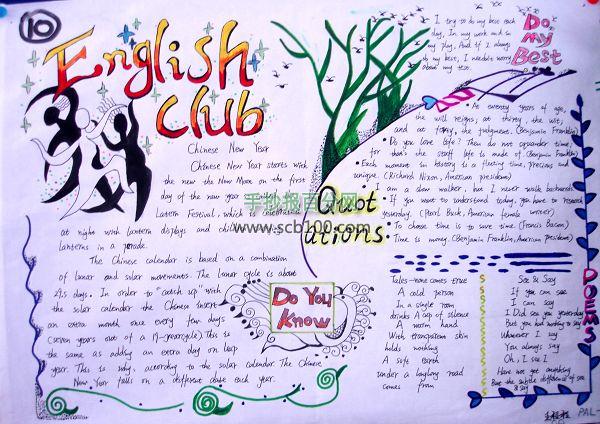 10
English
club
Chinese New Year
Chinese New Year starts with
the new the New Moon on the first
day of the new year
Lantern Festival, which is celebrated
at night with lantern displays and
lanterns in a parade.
The Chinese calendar is based on a combination
of lunar and solar movements. The lunar cycle is about
29.5 days. In order to "catch up" with
the solar calendar the Chinese insert
an extra month once every few days
(seven years out of a 19-yearcycle). This is
the same as adding an extra day on leap
year. This is why, according to the solar calendar. The Chinese
New Year falls on a different date each year.
Do You
Know
I try to do my best each
day, In my work and in
my play, And if I always
do my best, I needn't worry
about my test.
Do
My
Best
Quot
ations:
· At twenty years of age,
the will reigns; at thirty, the wit;
and at forty, the judgment. (Benjamin Franklin)
· Do you love life? Then do not squander time;
for that's the stuff life is made of. (Benjamin Franklin)
· Each moment in history is a fleeting time, precious and
unique. (Richard Nixon, American president)
· I am a slow walker, but I never walk backwards.
· If you want to understand today, you have to research
yesterday. (Pearl Buck, American female writer)
· To choose time is to save time. (Francis Bacon)
· Time is money. (Benjamin Franklin, American president)
手抄报百分网
www.scb100.com
POEMS
Tales-none comes true
A cold person
In a single room
drinks A cup of silence
A warm hand
With transparent skin
holds nothing
A soft earth
under a laughing road
comes from
See & Say
If you can see
I can say
I Did see you yesterday
But you had nothing to say
Whenever I say
You always say
Oh, I see!
Have not got anything
But the subtle difference of see
& say
PAL-